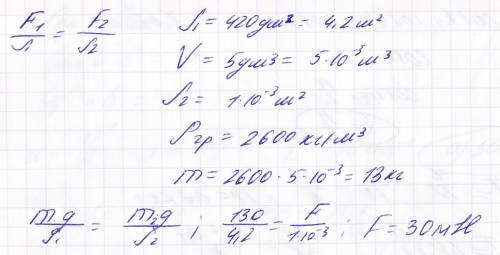 F₁/S₁ = F₂/S₂
S₁ = 420дм² = 4,2м²
V = 5дм3 = 5·10⁻³м³
S₂ = 1·10⁻³м²
ρгр = 2600кг/м³
m = 2600·5·10⁻³ = 13кг
mg/S₁ = m₁g/S₂ ; 130/4,2 = F/1·10⁻³ ; F = 30мН